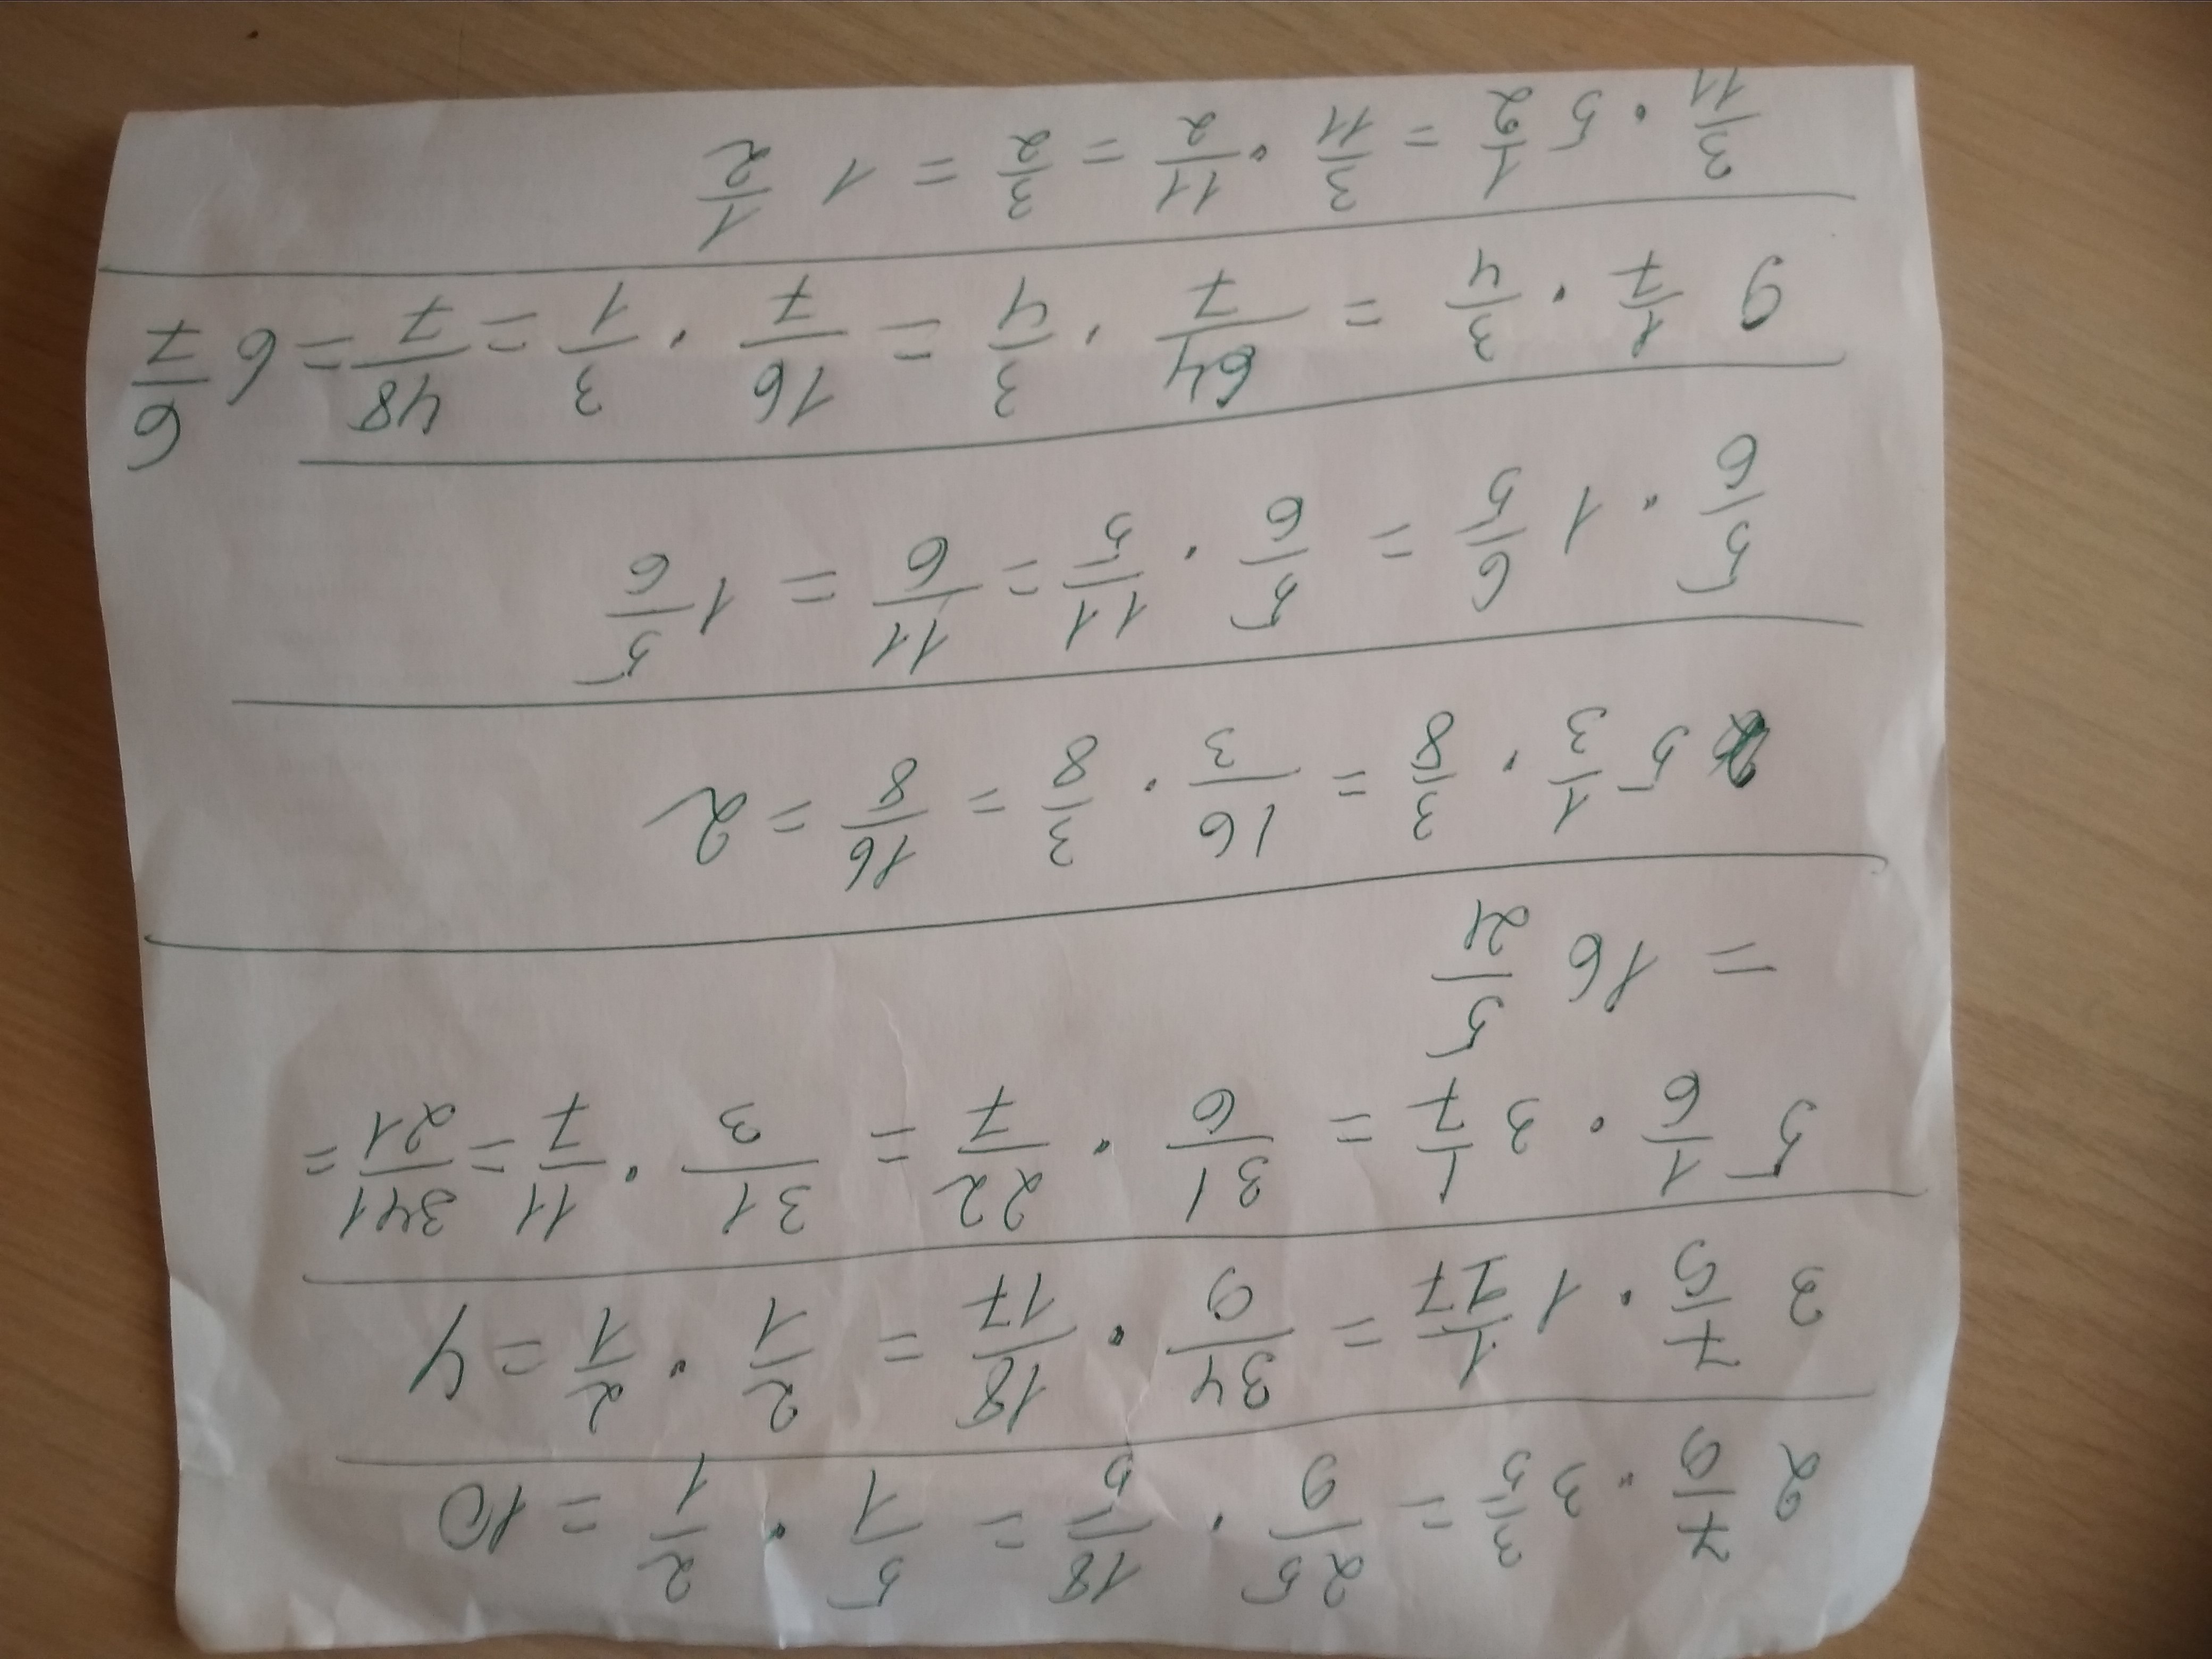 2 7/9 · 3 3/5 = 25/9 · 18/5 = 5/1 · 2/1 = 10
3 7/9 · 1 1/17 = 34/9 · 18/17 = 2/1 · 2/1 = 4
5 1/6 · 3 1/7 = 31/6 · 22/7 = 31/3 · 11/7 = 341/21 =
= 16 5/21
5 1/3 · 3/8 = 16/3 · 3/8 = 16/8 = 2
5/6 · 1 6/5 = 5/6 · 11/5 = 11/6 = 1 5/6
9 1/7 · 3/4 = 64/7 · 3/4 = 16/7 · 3/1 = 48/7 = 6 6/7
3/11 · 5 1/2 = 3/11 · 11/2 = 3/2 = 1 1/2